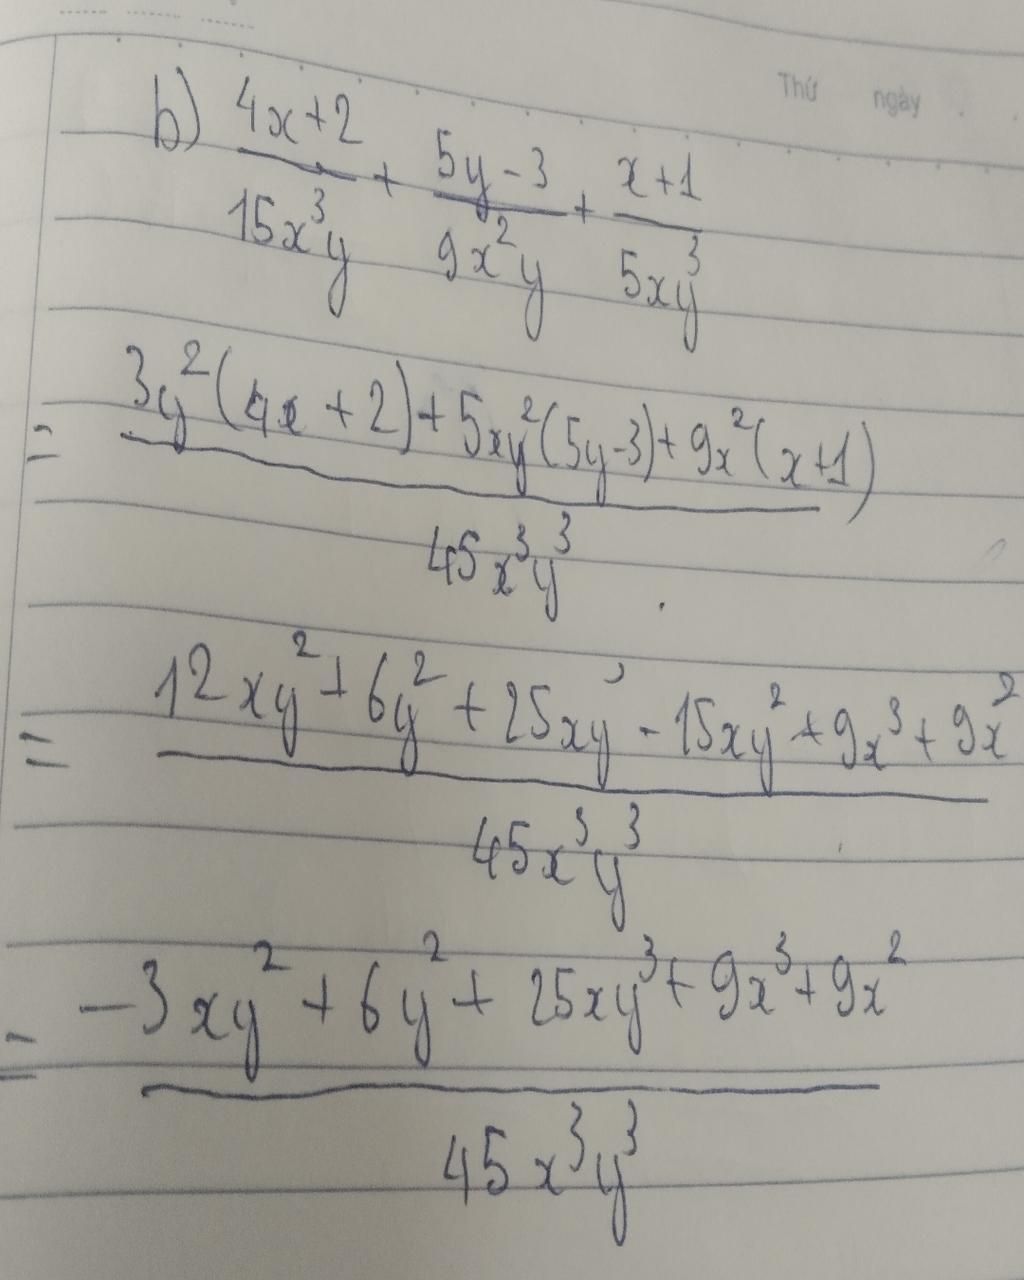 Thứ ngày
b) \frac{4x+2}{15x^3y} + \frac{5y-3}{9x^2y} + \frac{x+1}{5xy^3}
= \frac{3y^2(4x+2)+5xy^2(5y-3)+9x^2(x+1)}{45x^3y^3}
= \frac{12xy^2+6y^2+25xy^3-15xy^2+9x^3+9x^2}{45x^3y^3}
= \frac{-3xy^2+6y^2+25xy^3+9x^3+9x^2}{45x^3y^3}